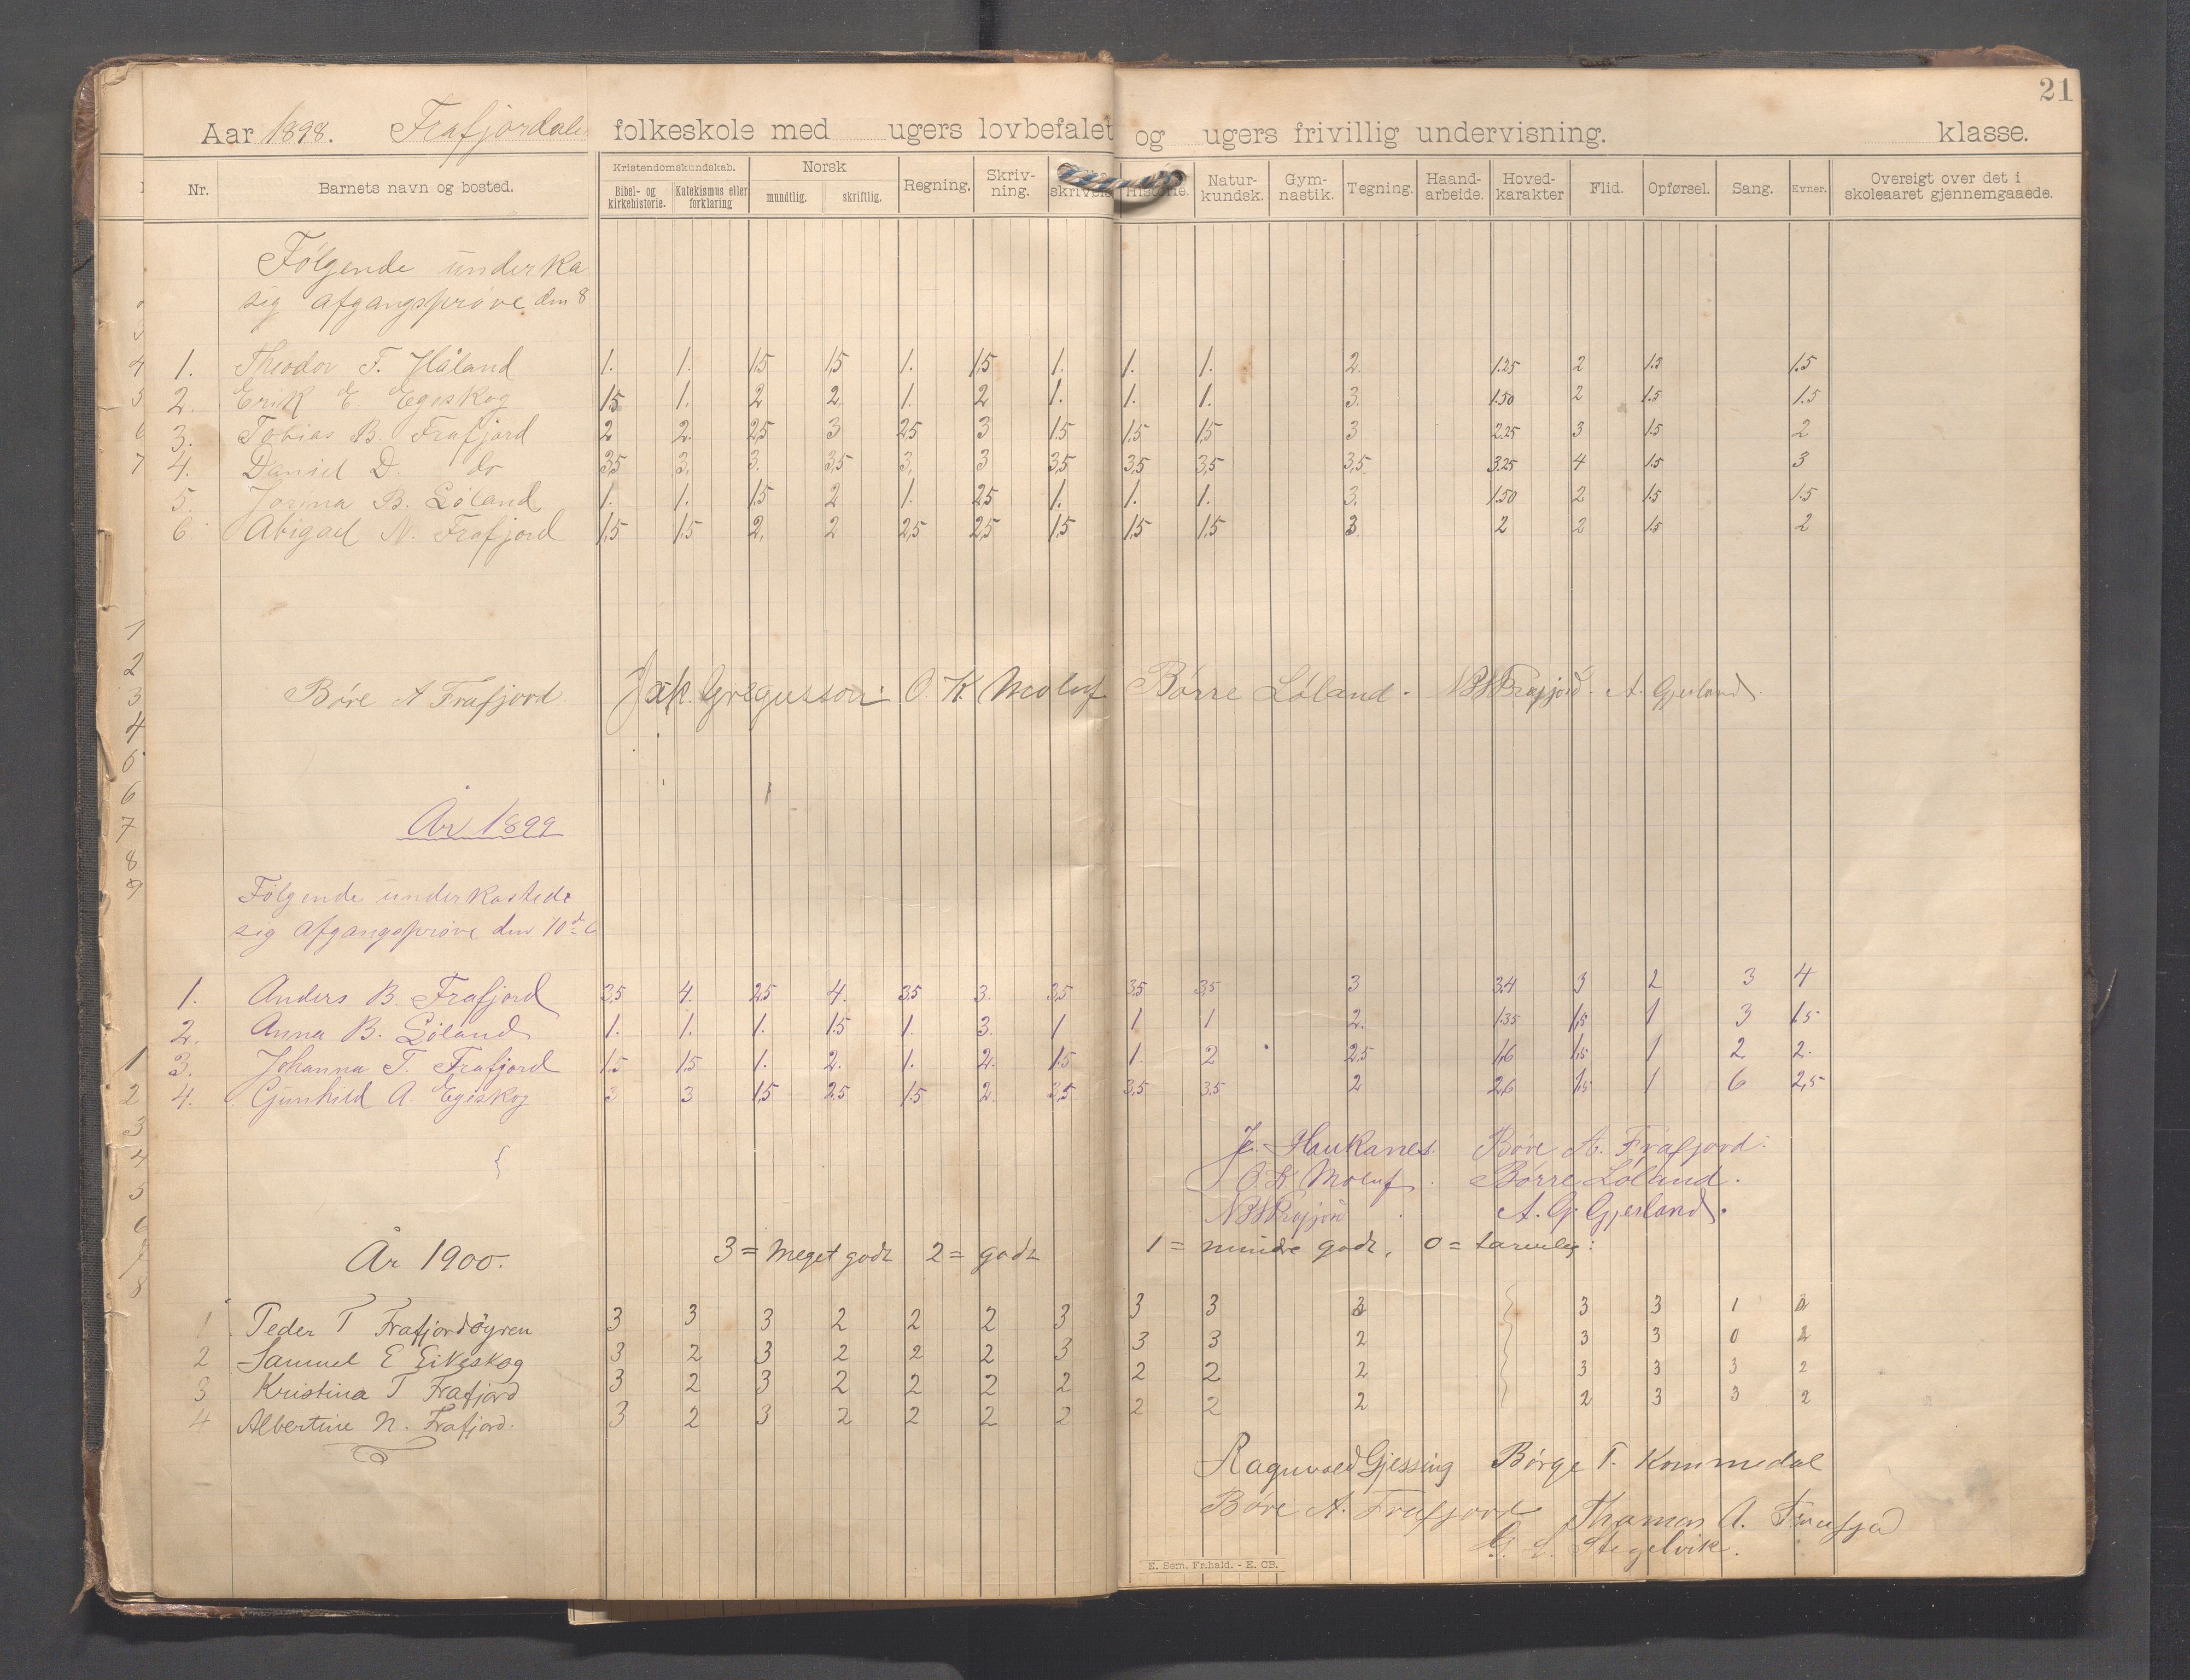 21
Aar 1898. Frafjordals folkeskole med ugers lovbefalet og ugers frivillig undervisning. klasse.
Nr. Barnets navn og bosted. Kristendomskundskab. Bibel- og kirkehistorie. Katekismus eller forklaring Norsk mundtlig. skriftlig. Regning. Skriv-ning. Historie. Natur-kundsk. Gym-nastik. Tegning. Haand-arbeide. Hoved-karakter Flid. Opførsel. Sang. Evner. Oversigt over det i skoleaaret gjennemgaaede.
Følgende underka
sig afgangsprøve den 8
1. Theodor T. Håland 1. 1. 1.5 1.5 1. 1.5 1. 1. 1. 2. 1.25 2 1.5 1.5
2. Erik E Egeskog 1.5 1. 2 2 1. 2 1. 1. 1. 3. 1.50 2 1.5 1.5
3. Tobias B. Frafjord 2 2. 2.5 3 2.5 3 1.5 1.5 1.5 3 2.25 3 1.5 2
4. Daniel D. do 3.5 3. 3. 3.5 3. 3 3.5 3.5 3.5 3.5 3.25 4 1.5 3
5. B. Løland 1. 1. 1.5 2 1. 2.5 1. 1. 1. 3. 1.50 2 1.5 1.5
6. Abigael N. Frafjord 1.5 1.5 2. 2 2.5 2.5 1.5 1.5 1.5 3. 2 2 1.5 2
Børe A Frafjord. Jak. Gregusson. O. K. Moluf Børre Løland. A. Gjerland.
År 1899
Følgende underkastede
sig afgangsprøve den 10d
1. Anders B. Frafjord 3.5 4. 2.5 4. 3.5 3. 3.5 3.5 3.5 3 3.4 3 2 3 4
2. Anna B. Løland 1. 1. 1. 1.5 1. 3. 1 1 1 2. 1.35 1.5 1 3 1.5
3. Johanna T. Frafjord 1.5 1.5 1. 2. 1. 2. 1.5 1 2 2.5 1.6 1.5 1 2 2.
4. Gunhild A. Egeskog 3 3 1.5 2.5 1.5 2. 3.5 3.5 3.5 2 2.6 1.5 1 6 2.5
J. Haukanes. Børe A. Frafjord.
O. K. Moluf. Børre Løland.
A. G. Gjerland.
År 1900. 3 = meget godt 2 = godt 1 = mindre godt, 0 = tarvelig:
1 Peder T Frafjordøyren 3 3 3 2 2 2 3 3 3 3 3 1 2
2 Samuel E Eikeskog 3 2 3 2 2 2 3 3 3 2 3 3 0 2
3 Kristina T Frafjord 3 2 3 2 2 2 2 2 2 2 3 3 3 2
4 Albertine N. Frafjord. 3 2 3 2 2 2 2 2 2 2 2 3 3 2
Ragnvald Gjessing Børge T. Kommedal
Børe A. Frafjord Thomas A. Frafjord
Stegelvik.
E. Sem, Fr.hald. - E. CB.